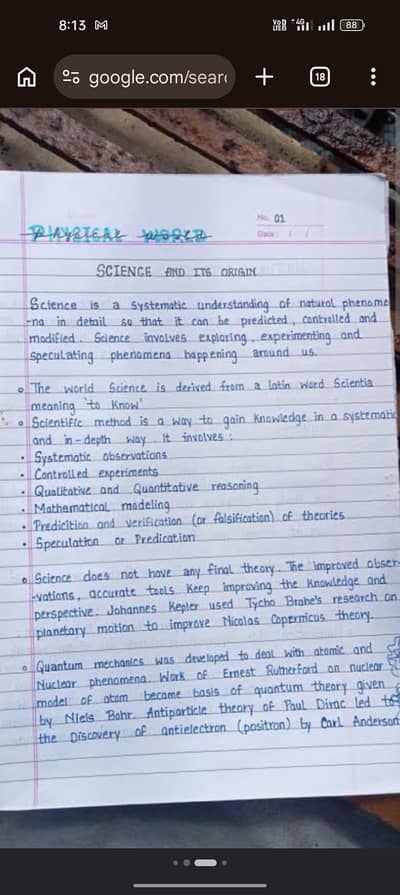 8:13
VoD
LTE
4G
88
google.com/sear
18
No. 01
Date: / /
PHYSICAL WORLD
SCIENCE AND ITS ORIGIN
Science is a systematic understanding of natural phenome
-na in detail so that it can be predicted, controlled and
modified. Science involves exploring, experimenting and
speculating phenomena happening around us.
The world Science is derived from a latin word Scientia
meaning 'to Know'
Scientific method is a way to gain Knowledge in a systematic
and in-depth way. It involves :
• Systematic observations
• Controlled experiments
• Qualitative and Quantitative reasoning
• Mathematical modeling
• Predicition and verification (or falsification) of theories
• Speculation or Predication
Science does not have any final theory. The improved obser-
-vations, accurate tools Keep improving the Knowledge and
perspective. Johannes Kepler used Tycho Brahe's research on
planetary motion to improve Nicolas Copernicus theory.
Quantum mechanics was developed to deal with atomic and
Nuclear phenomena. Work of Ernest Rutherford on nuclear
model of atom became basis of quantum theory given
by Niels Bohr. Antiparticle theory of Paul Dirac led to
the Discovery of antielectron (positron) by Carl Anderson